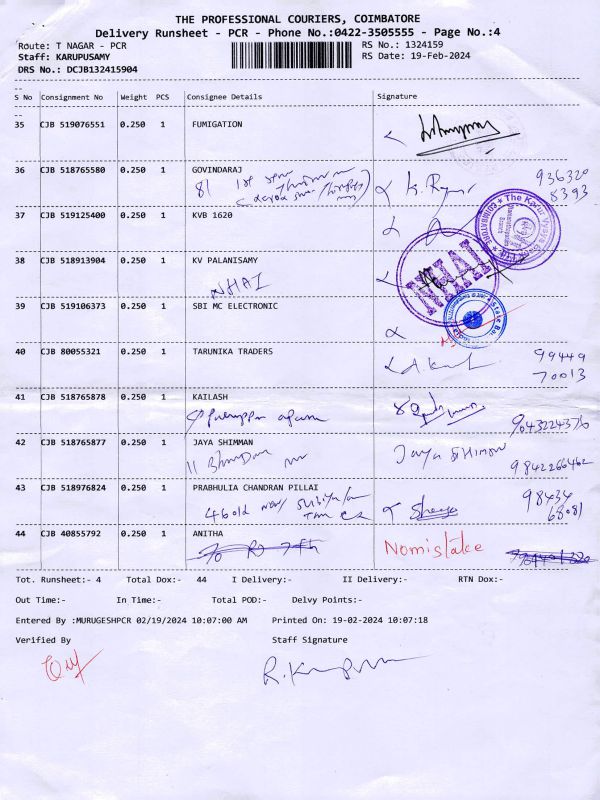 THE PROFESSIONAL COURIERS, COIMBATORE
Delivery Runsheet - PCR - Phone No.:0422-3505555 - Page No.:4
Route: T NAGAR - PCR
RS No.: 1324159
Staff: KARUPUSAMY
RS Date: 19-Feb-2024
DRS No.: DCJB132415904
S No Consignment No Weight PCS Consignee Details Signature
35 CJB 519076551 0.250 1 FUMIGATION
36 CJB 518765580 0.250 1 GOVINDARAJ
81 1st
936320
8393
37 CJB 519125400 0.250 1 KVB 1620
The Karur Vysya Bank Ltd.
COIMBATORE
38 CJB 518913904 0.250 1 KV PALANISAMY
NHAI
NHAI
39 CJB 519106373 0.250 1 SBI MC ELECTRONIC
40 CJB 80055321 0.250 1 TARUNIKA TRADERS
99449
70013
41 CJB 518765878 0.250 1 KAILASH
9643224376
42 CJB 518765877 0.250 1 JAYA SHIMMAN
11
Jaya
9842266462
43 CJB 518976824 0.250 1 PRABHULIA CHANDRAN PILLAI
46 old
98434
68081
44 CJB 40855792 0.250 1 ANITHA
Nomistake
Tot. Runsheet:- 4 Total Dox:- 44 I Delivery:- II Delivery:- RTN Dox:-
Out Time:- In Time:- Total POD:- Delvy Points:-
Entered By :MURUGESHPCR 02/19/2024 10:07:00 AM Printed On: 19-02-2024 10:07:18
Verified By Staff Signature